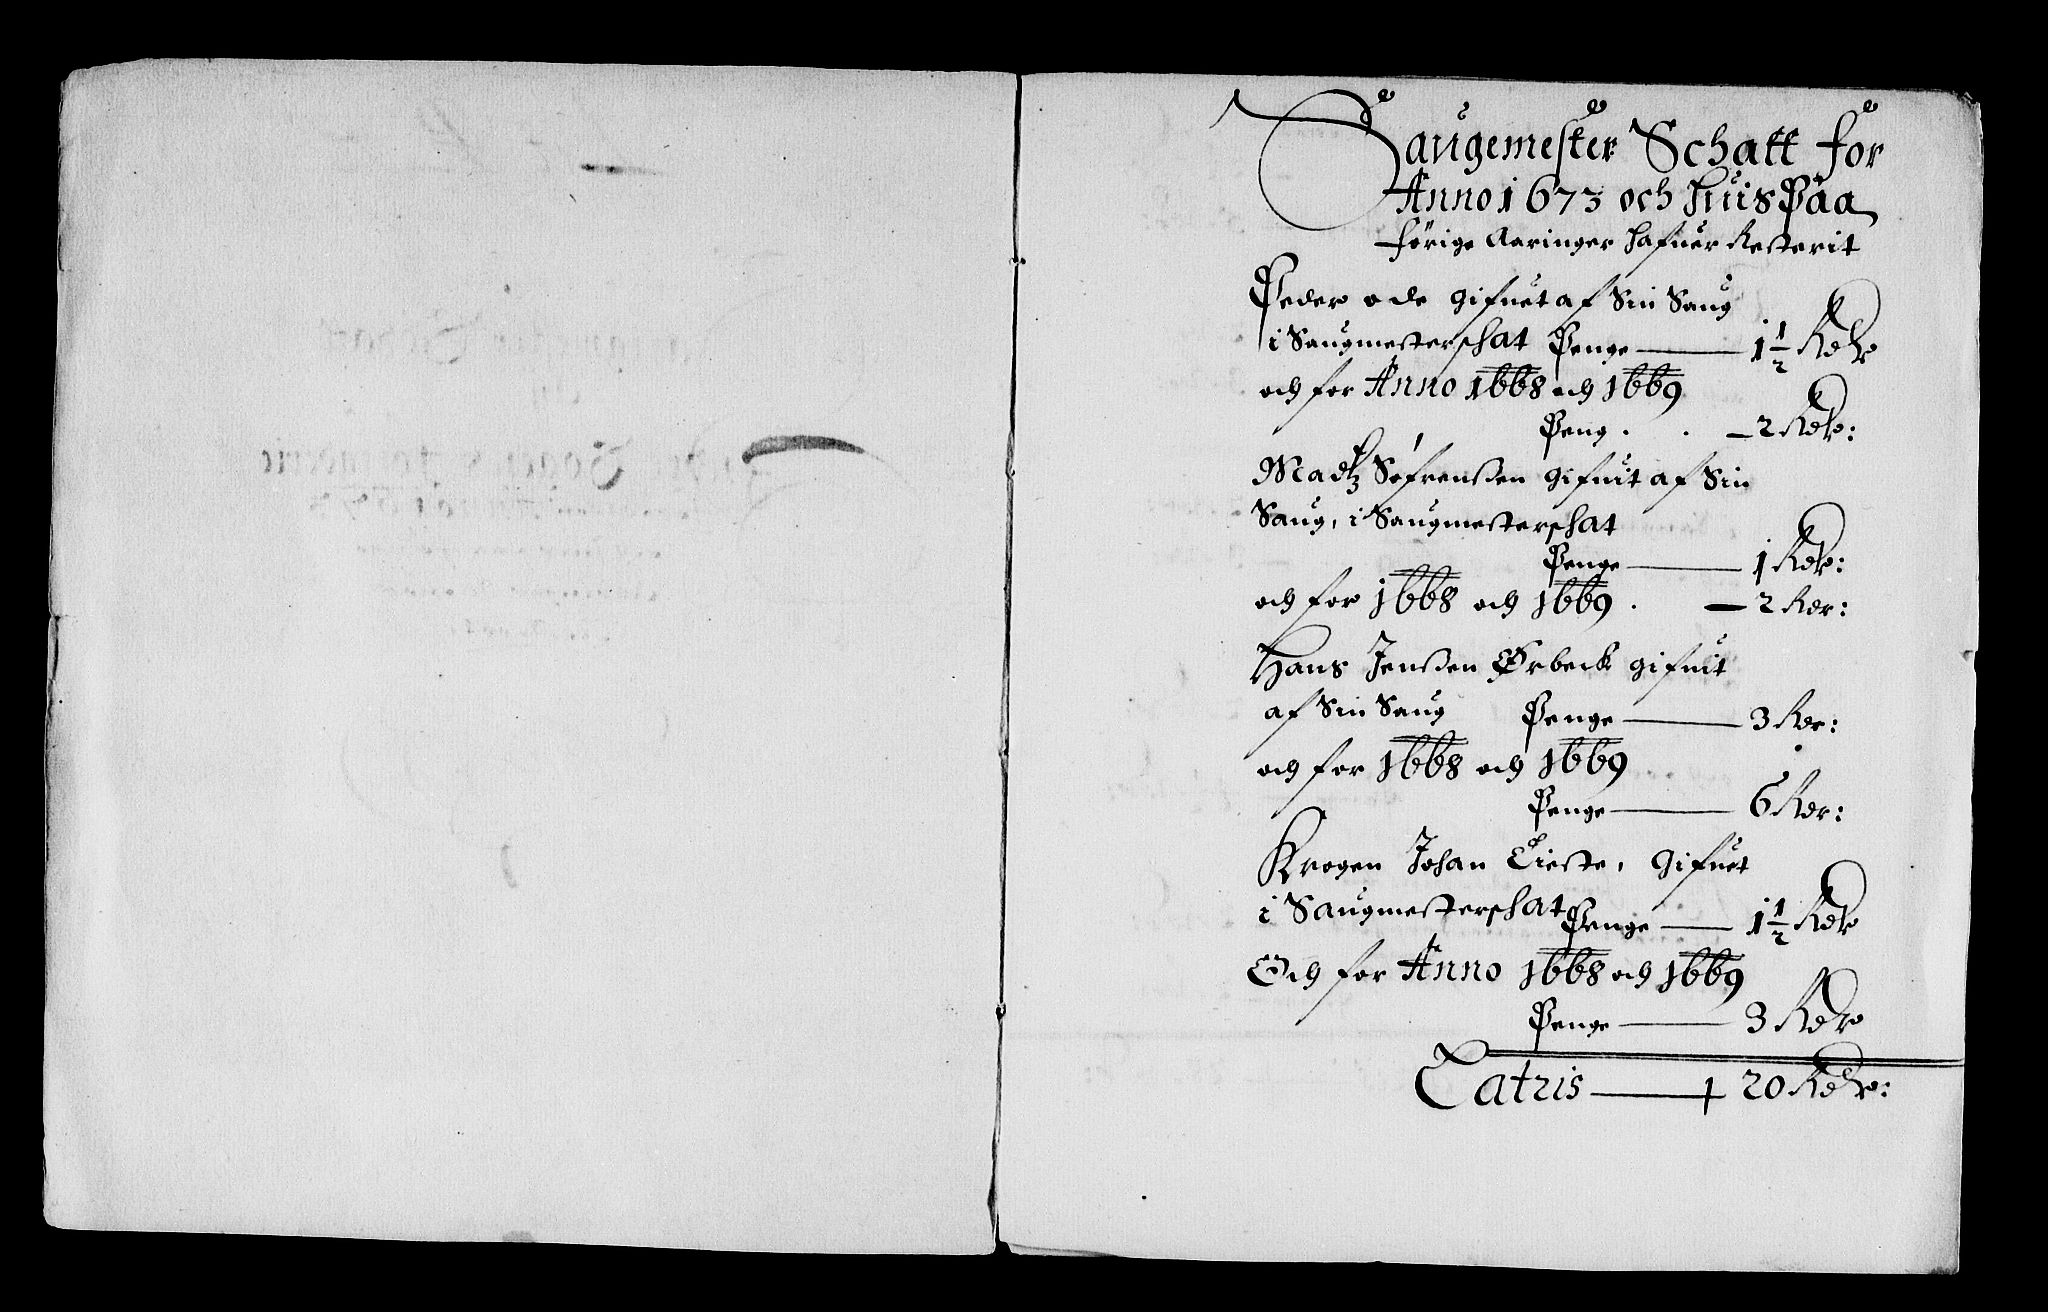 Saugemester Schatt for
Anno 1673 och huis Paa
förige Aaringer hafuer Resterit
Peder ode gifuet af Sin Saug
i Saugmesterschat Penge — 1½ Rdr
och for Anno 1668 och 1669
Peng . . — 2 Rdr:
Madtz Søfrenßen gifuit af Sin
Saug, i Saugmesterschat
Penge — 1 Rdr:
och for 1668 och 1669 . — 2 Rdr:
Hans Jenßen Ørbeck gifuit
af Sin Saug Penge — 3 Rdr:
och for 1668 och 1669
Penge — 6 Rdr:
Krogen Johan gifuet
i Saugmesterschat Penge — 1½ Rdr
Och for Anno 1668 och 1669
Penge — 3 Rdr
Latris — 20 Rdr: